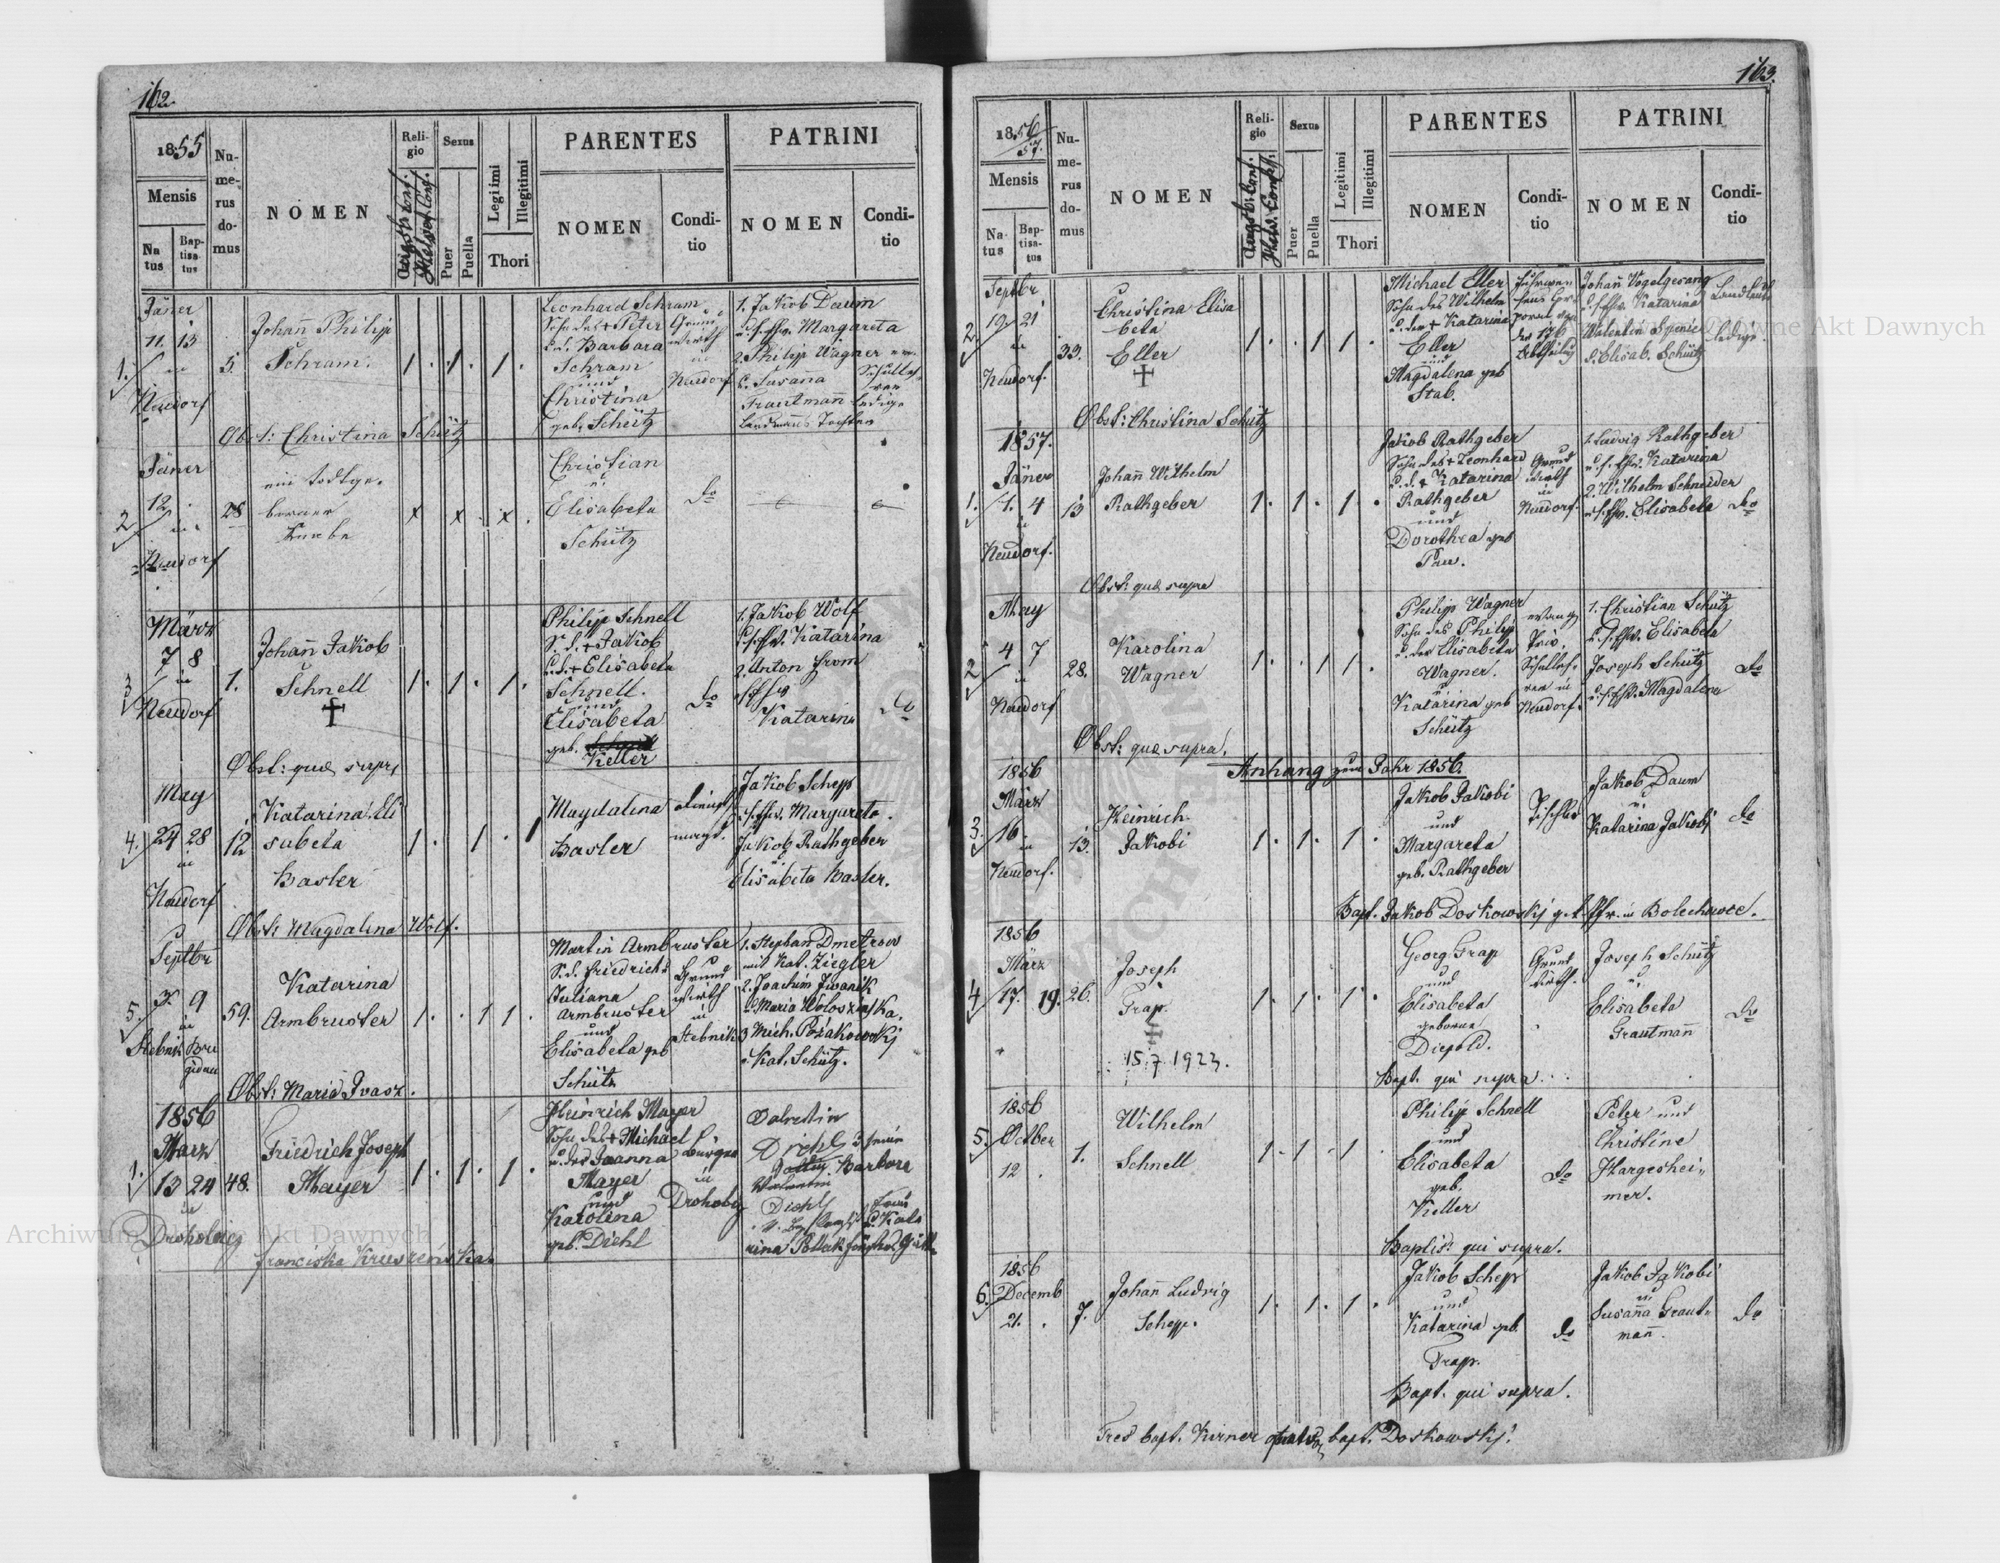 162.
1855
Mensis
Na
tus
Bap-
tisa-
tus
Nu-
me-
rus
do-
mus
NOMEN
Reli-
gio
Augsb. Conf.
Helvet. Conf.
Sexus
Puer
Puella
Legitimi
Illegitimi
Thori
PARENTES
NOMEN
Condi-
tio
PATRINI
NOMEN
Condi-
tio
Jäner
11. 13
in
Neudorf
1.
5.
Johañ Philipp
Schram.
1. 1. 1.
Leonhard Schram
Sohn des + Peter
u. d. Barbara
Schram
und
Christina
geb. Schütz
Grund
wirth
in
Neudorf
1. Jakob Daum
u. s. Ehw. Margareta
2. Philipp Wagner
Susaña
Trautmañ ledige
Landmañs Tochter
Obst: Christina Schütz
Jäner
12.
in
Neudorf
2
28
ein todtge-
borener
Knabe
x x x
Christian
u.
Elisabeta
Schütz
do
März
7 8
in
Neudorf
3
1.
Johañ Jakob
Schnell
1. 1. 1.
Philip Schnell
S. d. + Jakob
u. d. + Elisabeta
Schnell.
und
Elisabeta
geb.
Keller
do
1. Jakob Wolf
u. s. Ehw. Katarina
2. Anton From
Katarina
do
Obst: quæ supra
May
24 28
in
Neudorf
4.
12
Katarina Eli
sabeta
Basler
1. 1. 1
Magdalena
Basler
Dienst
magd.
Jakob Schepp
u. s. Ehw. Margareta.
Jakob Rathgeber
u.
Elisabeta Basler.
Obst: Magdalena Wolf.
Septbr
9
in
Stebnik
5.
59.
Katarina
Armbruster
1. 1 1.
Martin Armbruster
S. d. Friedrich
Juliana
Armbruster
und
Elisabeta geb
Schütz
Grund
wirth
in
Stebnik
1. Stephan Dmetrow
mit Kat. Ziegler
2. Joachim Iwanek
u. Maria Woloszinska.
3 Mich. Pozakowskj
u. Kat. Schütz.
Obst: Maria Ivasz.
1856
März
13 24
in
Drohobicz
1.
48.
Friedrich Joseph
Mayer
1. 1. 1.
Heinrich Mayer
Sohn des + Michael
u. der Joanna
Mayer
und
Karolina
geb. Diehl
Burger
in
Drohobicz
Valentin
Diehl
Barbara
Diehl
Franciska Kruszenska.
163.
1856
57.
Mensis
Na-
tus
Bap-
tisa-
tus
Nu-
me-
rus
do-
mus
NOMEN
Reli-
gio
Augsb. Conf.
Helv. Conf.
Sexus
Puer
Puella
Legitimi
Illegitimi
Thori
PARENTES
NOMEN
Condi-
tio
PATRINI
NOMEN
Condi-
tio
Septbr
19 21
in
Neudorf.
2.
33.
Christina Elisa
beta
Eller
1. . 1 1 .
Michael Eller
Sohn des Wilhelm
u. der + Katarina
Eller
und
Magdalena geb
Stab.
Johañ Vogelgesang
u. s. Ehw. Katarina
Valentin
u. Elisab. Schütz
Landleute
ledige.
Obst: Christina Schütz
1857.
Jäner
1. 4
in
Neudorf.
1.
13
Johañ Wilhelm
Rathgeber
1. 1. 1. .
Jakob Rathgeber
Sohn des + Leonhard
u. d. + Katarina
Rathgeber
und
Dorothea geb
Pau.
Grund
wirth
in
Neudorf.
1. Ludwig Rathgeber
u. s. Ehw. Katarina
2. Wilhelm Schneider
u. s. Ehw. Elisabeta
do
Obst: quæ supra
May
4 7
in
Neudorf
2
28.
Karolina
Wagner
1. . 1 1 .
Philipp Wagner
Sohn des Philip
u. der Elisabeta
Wagner.
u.
Katarina geb
Schütz
Schulleh-
rer in
Neudorf.
1. Christian Schütz
u. s. Ehw. Elisabeta
Joseph Schütz
u. s. Ehw. Magdalena
do
Obst: quæ supra.
Anhang zum Jahr 1856.
1856
März
16.
in
Neudorf.
3.
13.
Heinrich
Jakobi
1. 1. 1. .
Jakob Jakobi
und
Margareta
geb. Rathgeber
Tischler
Jakob Daum
u.
Katarina Jakobi
do
Bapt. Jakob Doskowskj g. k. Pfr. in Bolechowce.
1856
März
17. 19.
4
26.
Joseph
Grap.
15.7.1923.
1. 1. 1. .
Georg Grap
und
Elisabeta
geborene
Diepold.
Grund
wirth.
Joseph Schütz
u.
Elisabeta
Grautmañ
do
Bapt. qui supra
1856
Octber
12 .
5.
1.
Wilhelm
Schnell
1. 1 . 1 .
Philipp Schnell
und
Elisabeta
geb.
Keller
do
Peter und
Christine
Hargeshei-
mer.
Baptis: qui supra.
1856
Decemb
21. .
6.
7.
Johañ Ludwig
Schepp.
1. 1. 1. .
Jakob Schepp
und
Katarina geb.
Trapp.
do
Jakob Jakobi
u.
Susaña Graut-
mañ.
do
Bapt. qui supra.
Tres bapt. Kirner quatuor bapt. Doskowskj.
Archiwum Główne Akt Dawnych
Archiwum Główne Akt Dawnych